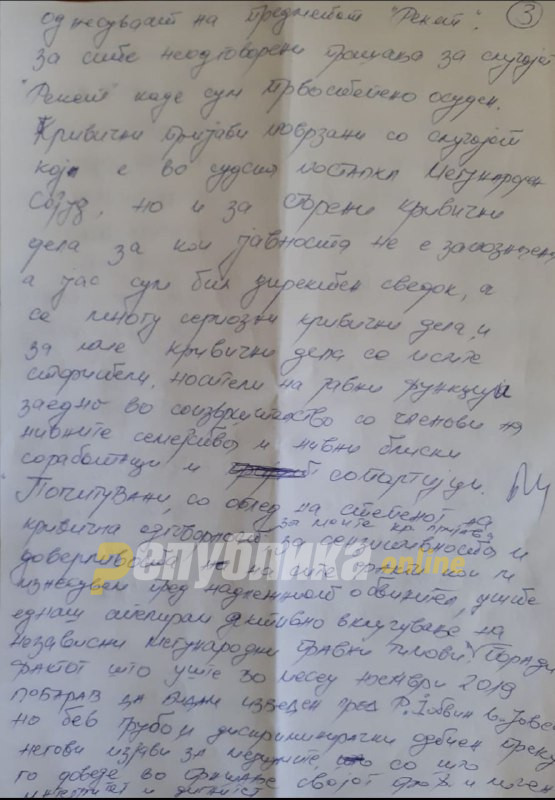 однесуваат на предметот "Рекет". 3
за сите неодговорени прашања за случајот
"Рекет" каде сум првостепено осуден.
Кривични пријави поврзани со случајот
кој е во судска постапка Меѓународен
Сојуз, но и за сторени кривични
дела за кои јавноста не е запознаена
а јас сум бил директен сведок, а
се многу сериозни кривични дела, и
за кривични дела се исите
сторители, носители на јавни функции
заедно во соизвршителство со членови на
нивните семејства и нивни блиски
соработници и сопартијци.
Почитувани, со оглед на степенот на
за моите
кривична одговорност за сензитивноста и
доверливоста на сите факти кои ги
Република online
изнесувам пред надлежниот обвинител, уште
еднаш апелирам активно вклучување на
независни меѓународни правни тимови. Поради
фактот што уште во месец ноември 2019
побарав да бидам изведен пред Р.
но бев грубо и дискриминрачки одбиен преку
негови изјави за медиумите, со што
го доведе во прашање својот и
интегритет и дигнитет